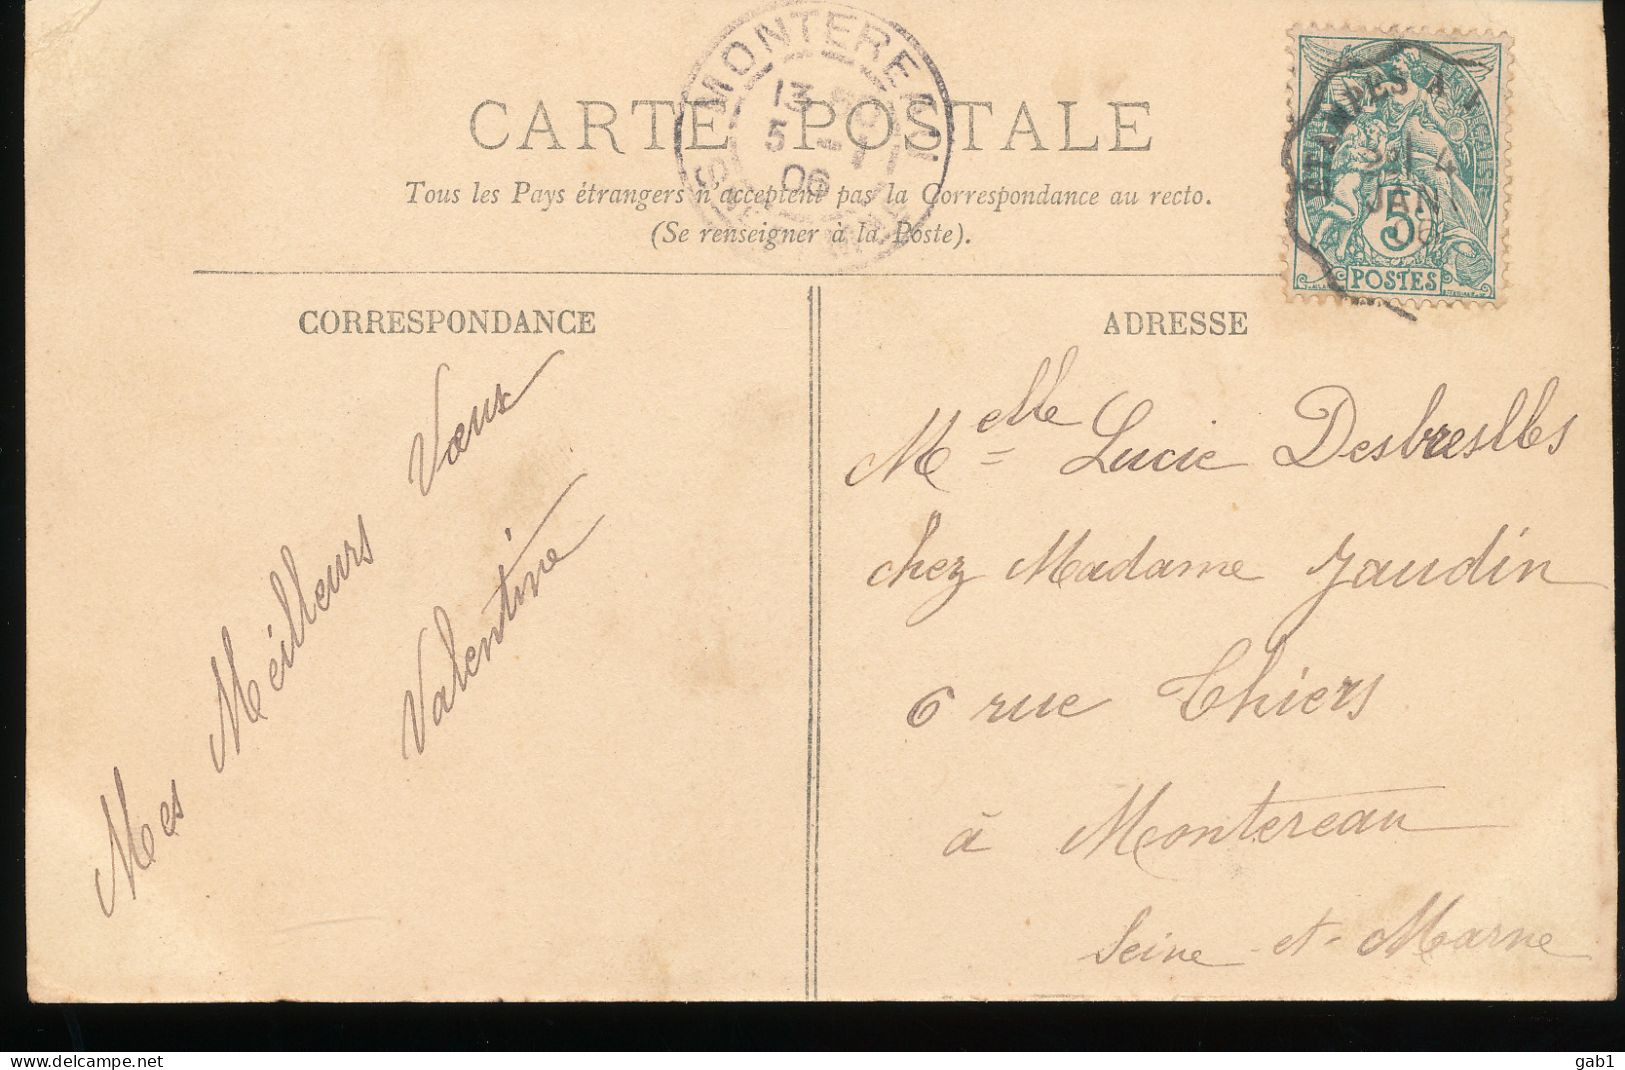 MONTEREAU
13
5 -1
06
CARTE POSTALE
Tous les Pays étrangers n'acceptent pas la Correspondance au recto.
(Se renseigner à la Poste).
ETAMPES A
4
JAN
06
5
POSTES
CORRESPONDANCE
Mes Meilleurs Vœux
Valentine
ADRESSE
Melle Lucie
chez Madame Jaudin
6 rue Thiers
à Montereau
Seine-et-Marne
delcampe.net
gab1